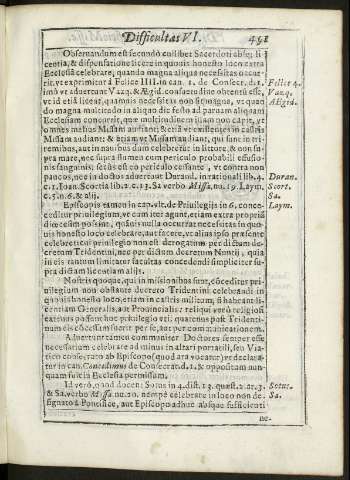 Difficultas VI. 491
Obseruandum est secundò cuilibet Sacerdoti absq; li
centia, & dispensatione licere in quouis honesto loco extra
Ecclesiã celebrare, quando magna aliqua necessitas occur
rerit, vt exprimitur à Felice IIII. in can. 1. de Consecr. d. 1. Felice 4.
imò vt aduertunt Vazq. & Ægid. consuetudine obtentũ esse, Vazq.
vt id etiã liceat, quamuis necessitas non sit magna, vt quan Ægid.
do magna multitudo in aliquo die festo ad paruam aliquam
Ecclesiam concurrit, quæ multitudinem illam non capit, vt
omnes intus Missam audiant; & etiã vt existentes in castris
Missam audiant; & etiam vt Missam audiant, qui sunt in tri-
remibus, aut in nauibus dum celebratur in littore, & non su
pra mare, nec supra flumen cum periculo probabili effusio-
nis sanguinis, secùs est eo periculo cessante, vt contra non
paucos, nec indoctos adnotant Durand. in rationali lib. 4. Duran.
c. 1. Ioan. Scortia lib. 1. c. 13. Sa verbo Missa, nu. 19. Laym. Scort.
c. 5. n. 6. & alij. Sa.
Episcopis tamen in cap. vlt. de Priuilegijs in 6. conce- Laym.
ceditur priuilegium, vt cum iter agunt, etiam extra propriã
diœcesim possint, quãuis nulla occurrat necessitas in quo-
uis honesto loco celebrare, aut facere, vt alius ipso præsente
celebret: cui priuilegio non est derogatum per dictum de-
cretum Tridentini, nec per dictum decretum Nuntij, quia
in eis tantum limitatur facultas concedendi simpliciter su-
pra dictam licentiam alijs.
Nostris quoque, qui in missionibus sunt, cõceditur pri
uilegium non obstante decreto Tridentini celebrandi in
quouis honesto loco, etiam in castris militum, si habeant li-
centiam Generalis, aut Prouincialis: reliqui verò religiosi
eatenus possunt hoc priuilegio vti quatenus post Tridenti-
num eis cõcessum fuerit per se, aut per communicationem.
Aduertunt tamen communiter Doctores semper esse
necessarium celebrare ad minus in altari portatili, seu Via-
tico consecrato ab Episcopo (quod ara vocatur) vt declara-
tur in can. Concedimus de Consecrat. d. 1. & oppositum nun-
quam fuit in Ecclesia permissum.
Id verò, quod docent Sotus in 4. dist. 13. quæst. 2. ar. 3. Sotus.
& Sa. verbo Missa nu. 20. nempè celebrare in loco non de Sa.
signato à Pontifice, aut Episcopo adhuc absque sufficienti
ne-